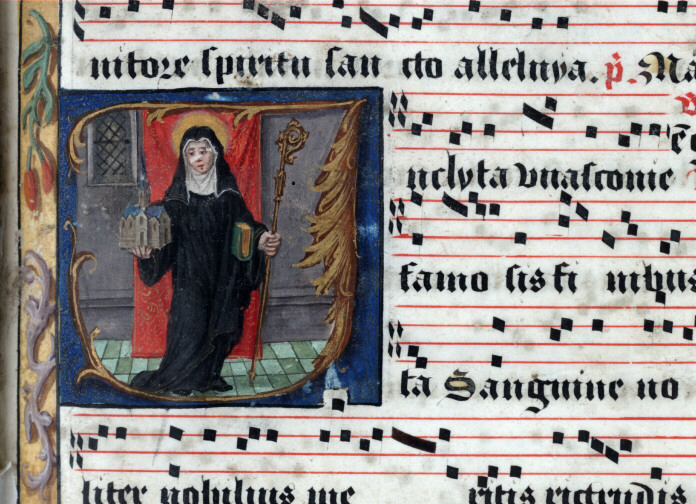 nitore spiritu san cto alleluya. p. Ma
nclyta vuasconie
famo sis fi nibus
ta Sanguine no
liter nobilius me ritis